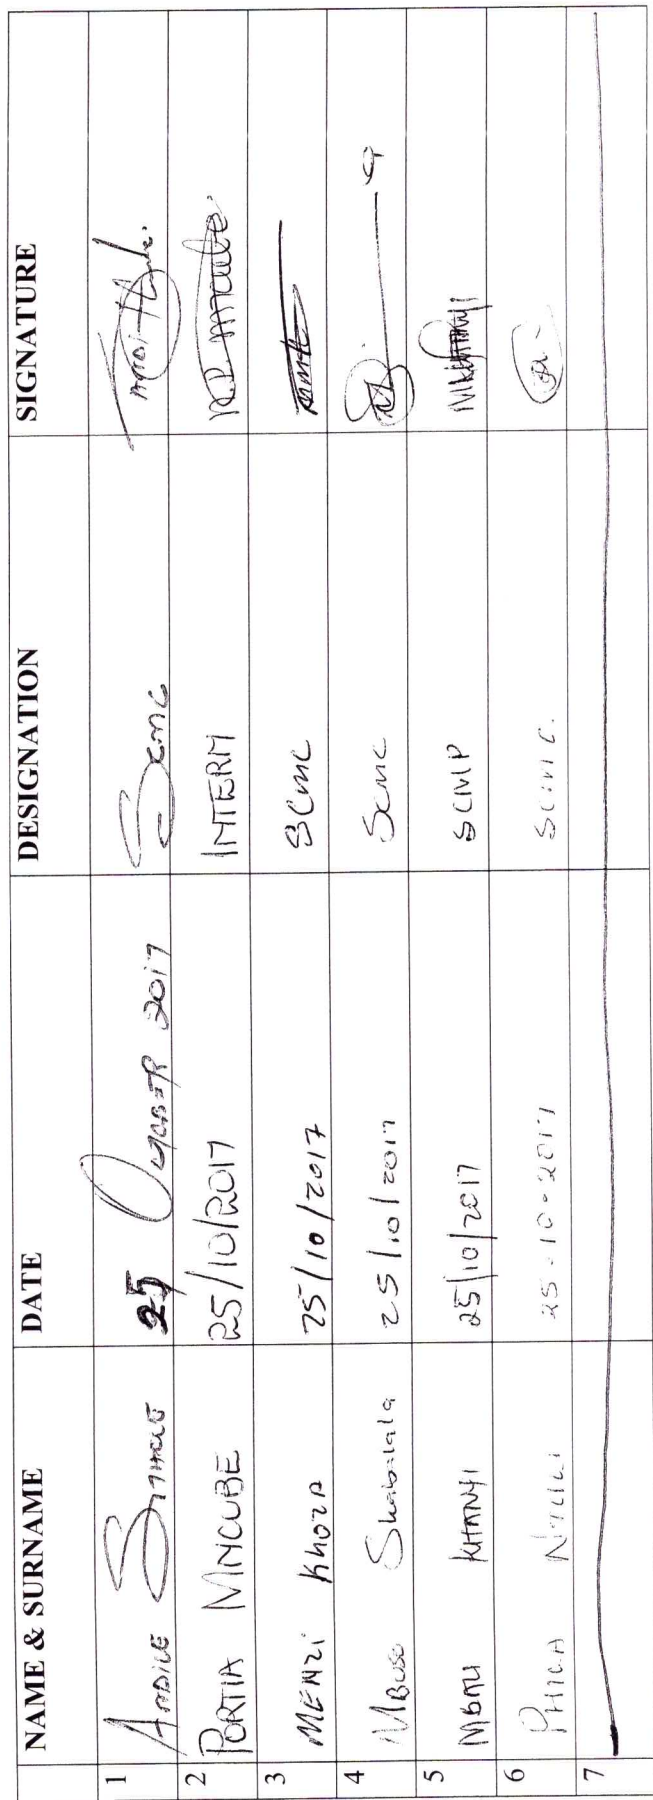 NAME & SURNAME DATE DESIGNATION SIGNATURE
1 25 October 2017 Scmc
2 PORTIA MNCUBE 25/10/2017 INTERM N.P. Mncube
3 MENZI KHOZA 25/10/2017 SCMC
4 MBUSO Shabalala 25/10/2017 Scmc
5 KHANYI 25/10/2017 SCMP
6 PHILA 25-10-2017 SCMC.
7